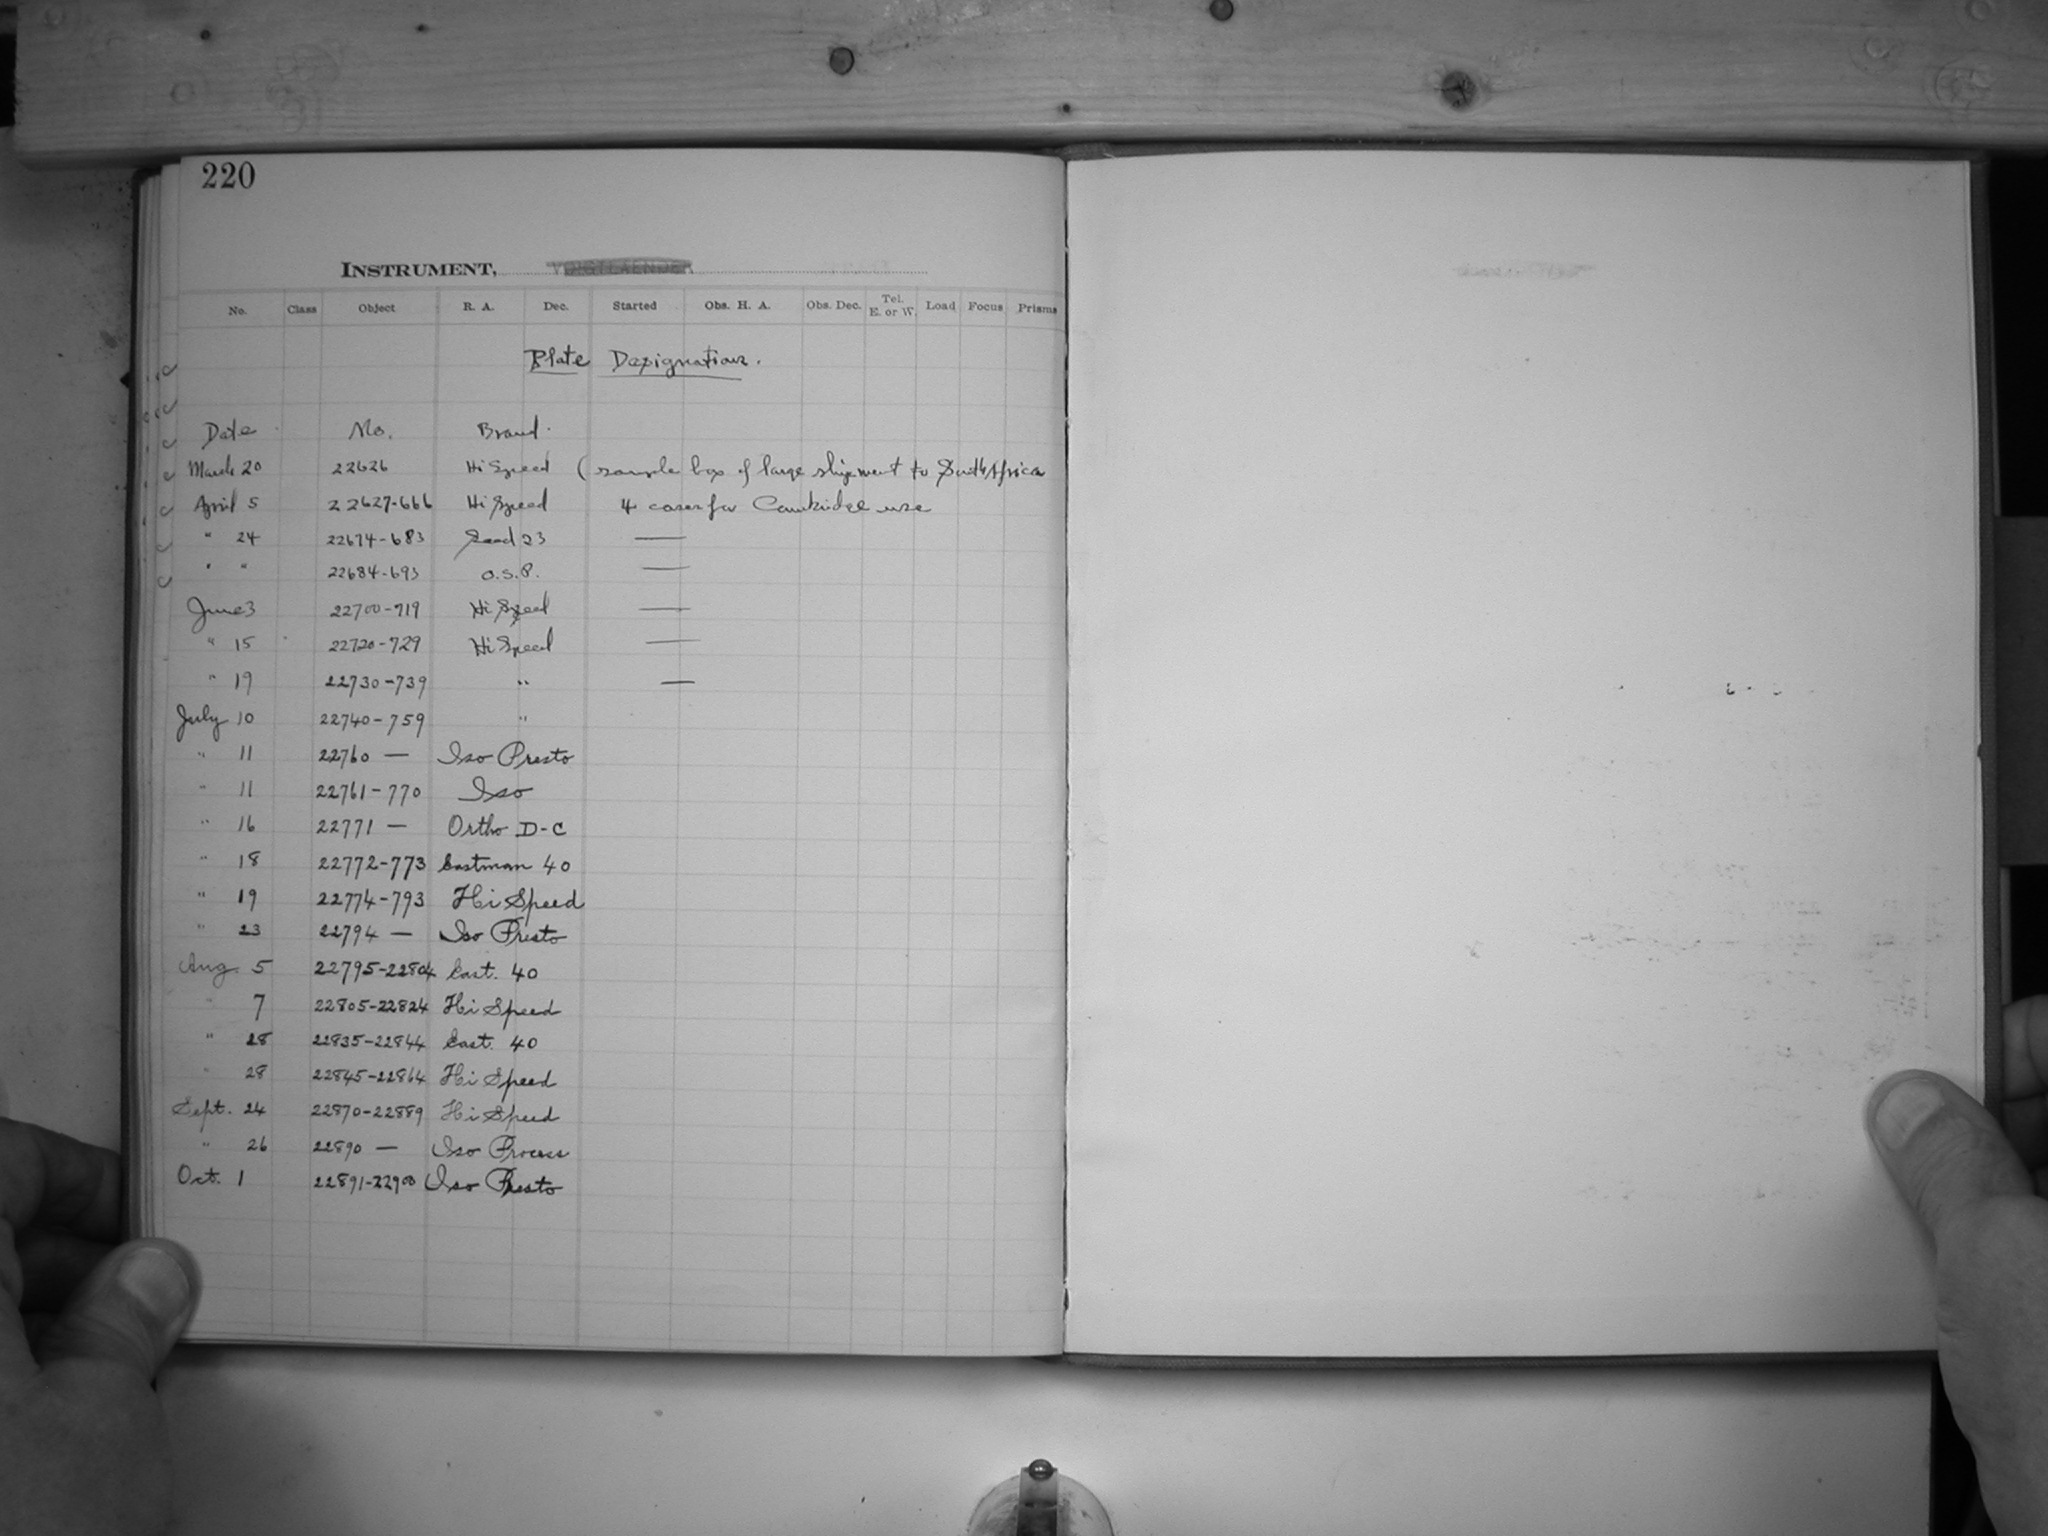 220
INSTRUMENT, VOIGTLAENDER
No. Class Object R. A. Dec. Started Obs. H. A. Obs. Dec. Tel. E. or W. Load Focus Prisms
Plate Designations.
Date No. Brand.
March 20 22626 Hi Speed ( sample box of large shipment to South Africa
April 5 22627-666 Hi Speed 4 cases for Cambridge use
" 24 22674-683 Seed 23 —
" " 22684-693 O.S.P. —
June 3 22700-719 Hi Speed —
" 15 22720-729 Hi Speed —
" 19 22730-739 " —
July 10 22740-759 "
" 11 22760 — Iso Presto
" 11 22761-770 Iso
" 16 22771 — Ortho D-C
" 18 22772-773 Eastman 40
" 19 22774-793 Hi Speed
" 23 22794 — Iso Presto
Aug. 5 22795-22804 East. 40
" 7 22805-22824 Hi Speed
" 28 22835-22844 East. 40
" 28 22845-22864 Hi Speed
Sept. 24 22870-22889 Hi Speed
" 26 22890 — Iso Process
Oct. 1 22891-22900 Iso Presto